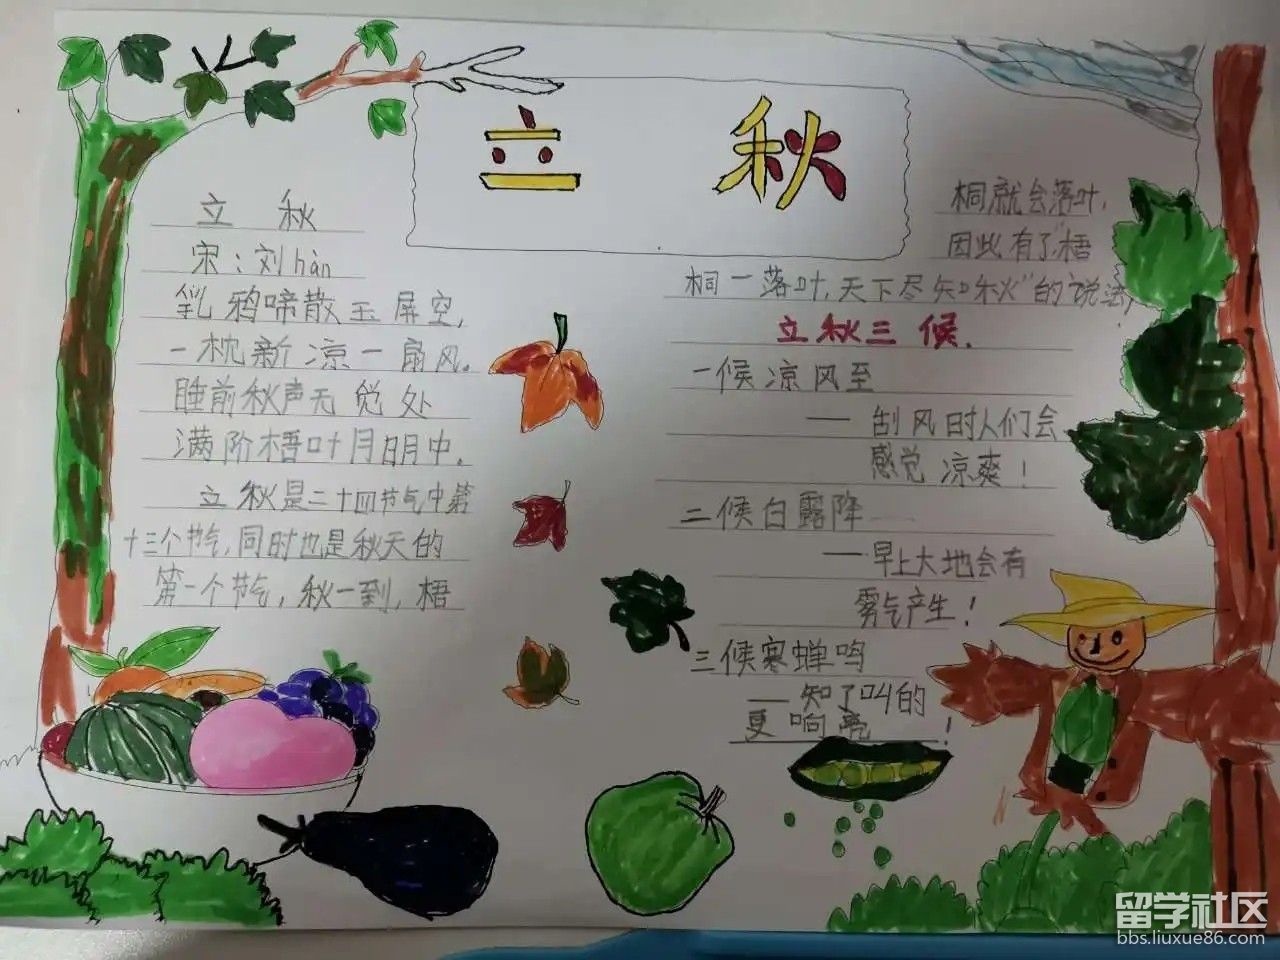 立秋
立 秋
宋：刘hàn
乳鸦啼散玉屏空，
一枕新凉一扇风。
睡前秋声无觉处
满阶梧叶月明中。
立秋是二十四节气中第
十三个节气，同时也是秋天的
第一个节气，秋一到，梧
桐就会落叶，
因此有了"梧
桐一落叶，天下尽知秋"的说法，
立秋三候.
一候凉风至
——刮风时人们会
感觉凉爽！
二候白露降
——早上大地会有
雾气产生！
三候寒蝉鸣
——知了叫的
更响亮！
留学社区
bbs.liuxue86.com